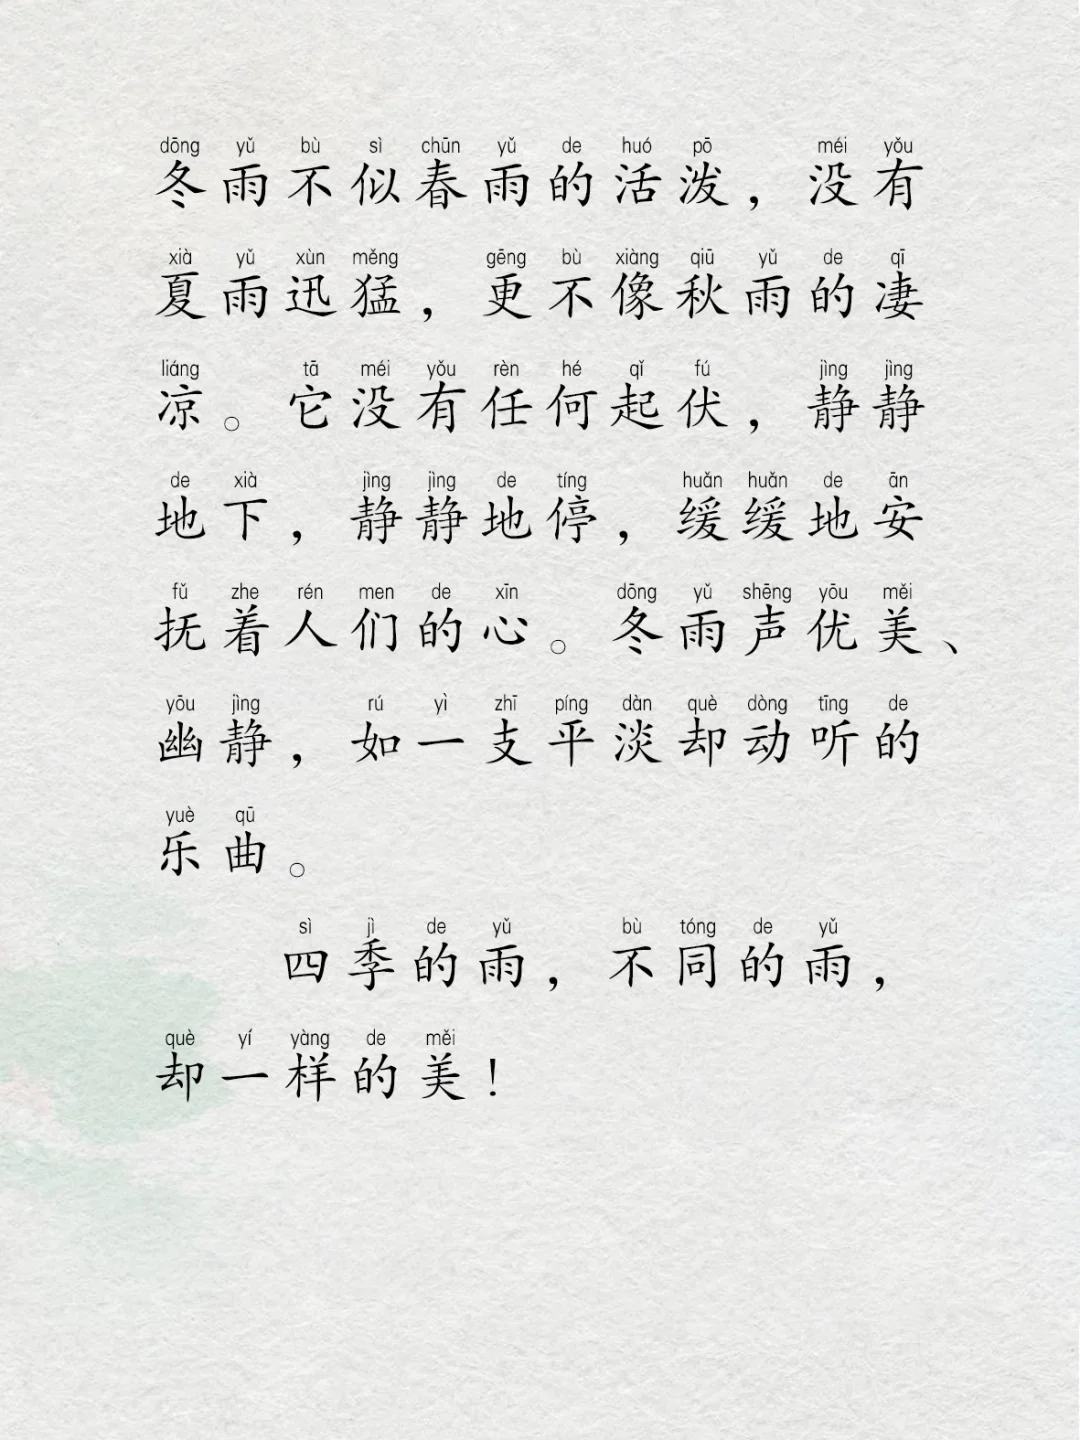 dōng yǔ bù sì chūn yǔ de huó pō méi yǒu
冬雨不似春雨的活泼，没有
xià yǔ xùn měng gēng bù xiàng qiū yǔ de qī
夏雨迅猛，更不像秋雨的凄
liáng tā méi yǒu rèn hé qǐ fú jìng jìng
凉。它没有任何起伏，静静
de xià jìng jìng de tíng huǎn huǎn de ān
地下，静静地停，缓缓地安
fǔ zhe rén men de xīn dōng yǔ shēng yōu měi
抚着人们的心。冬雨声优美、
yōu jìng rú yì zhī píng dàn què dòng tīng de
幽静，如一支平淡却动听的
yuè qū
乐曲。
sì jì de yǔ bù tóng de yǔ
四季的雨，不同的雨，
què yí yàng de měi
却一样的美！